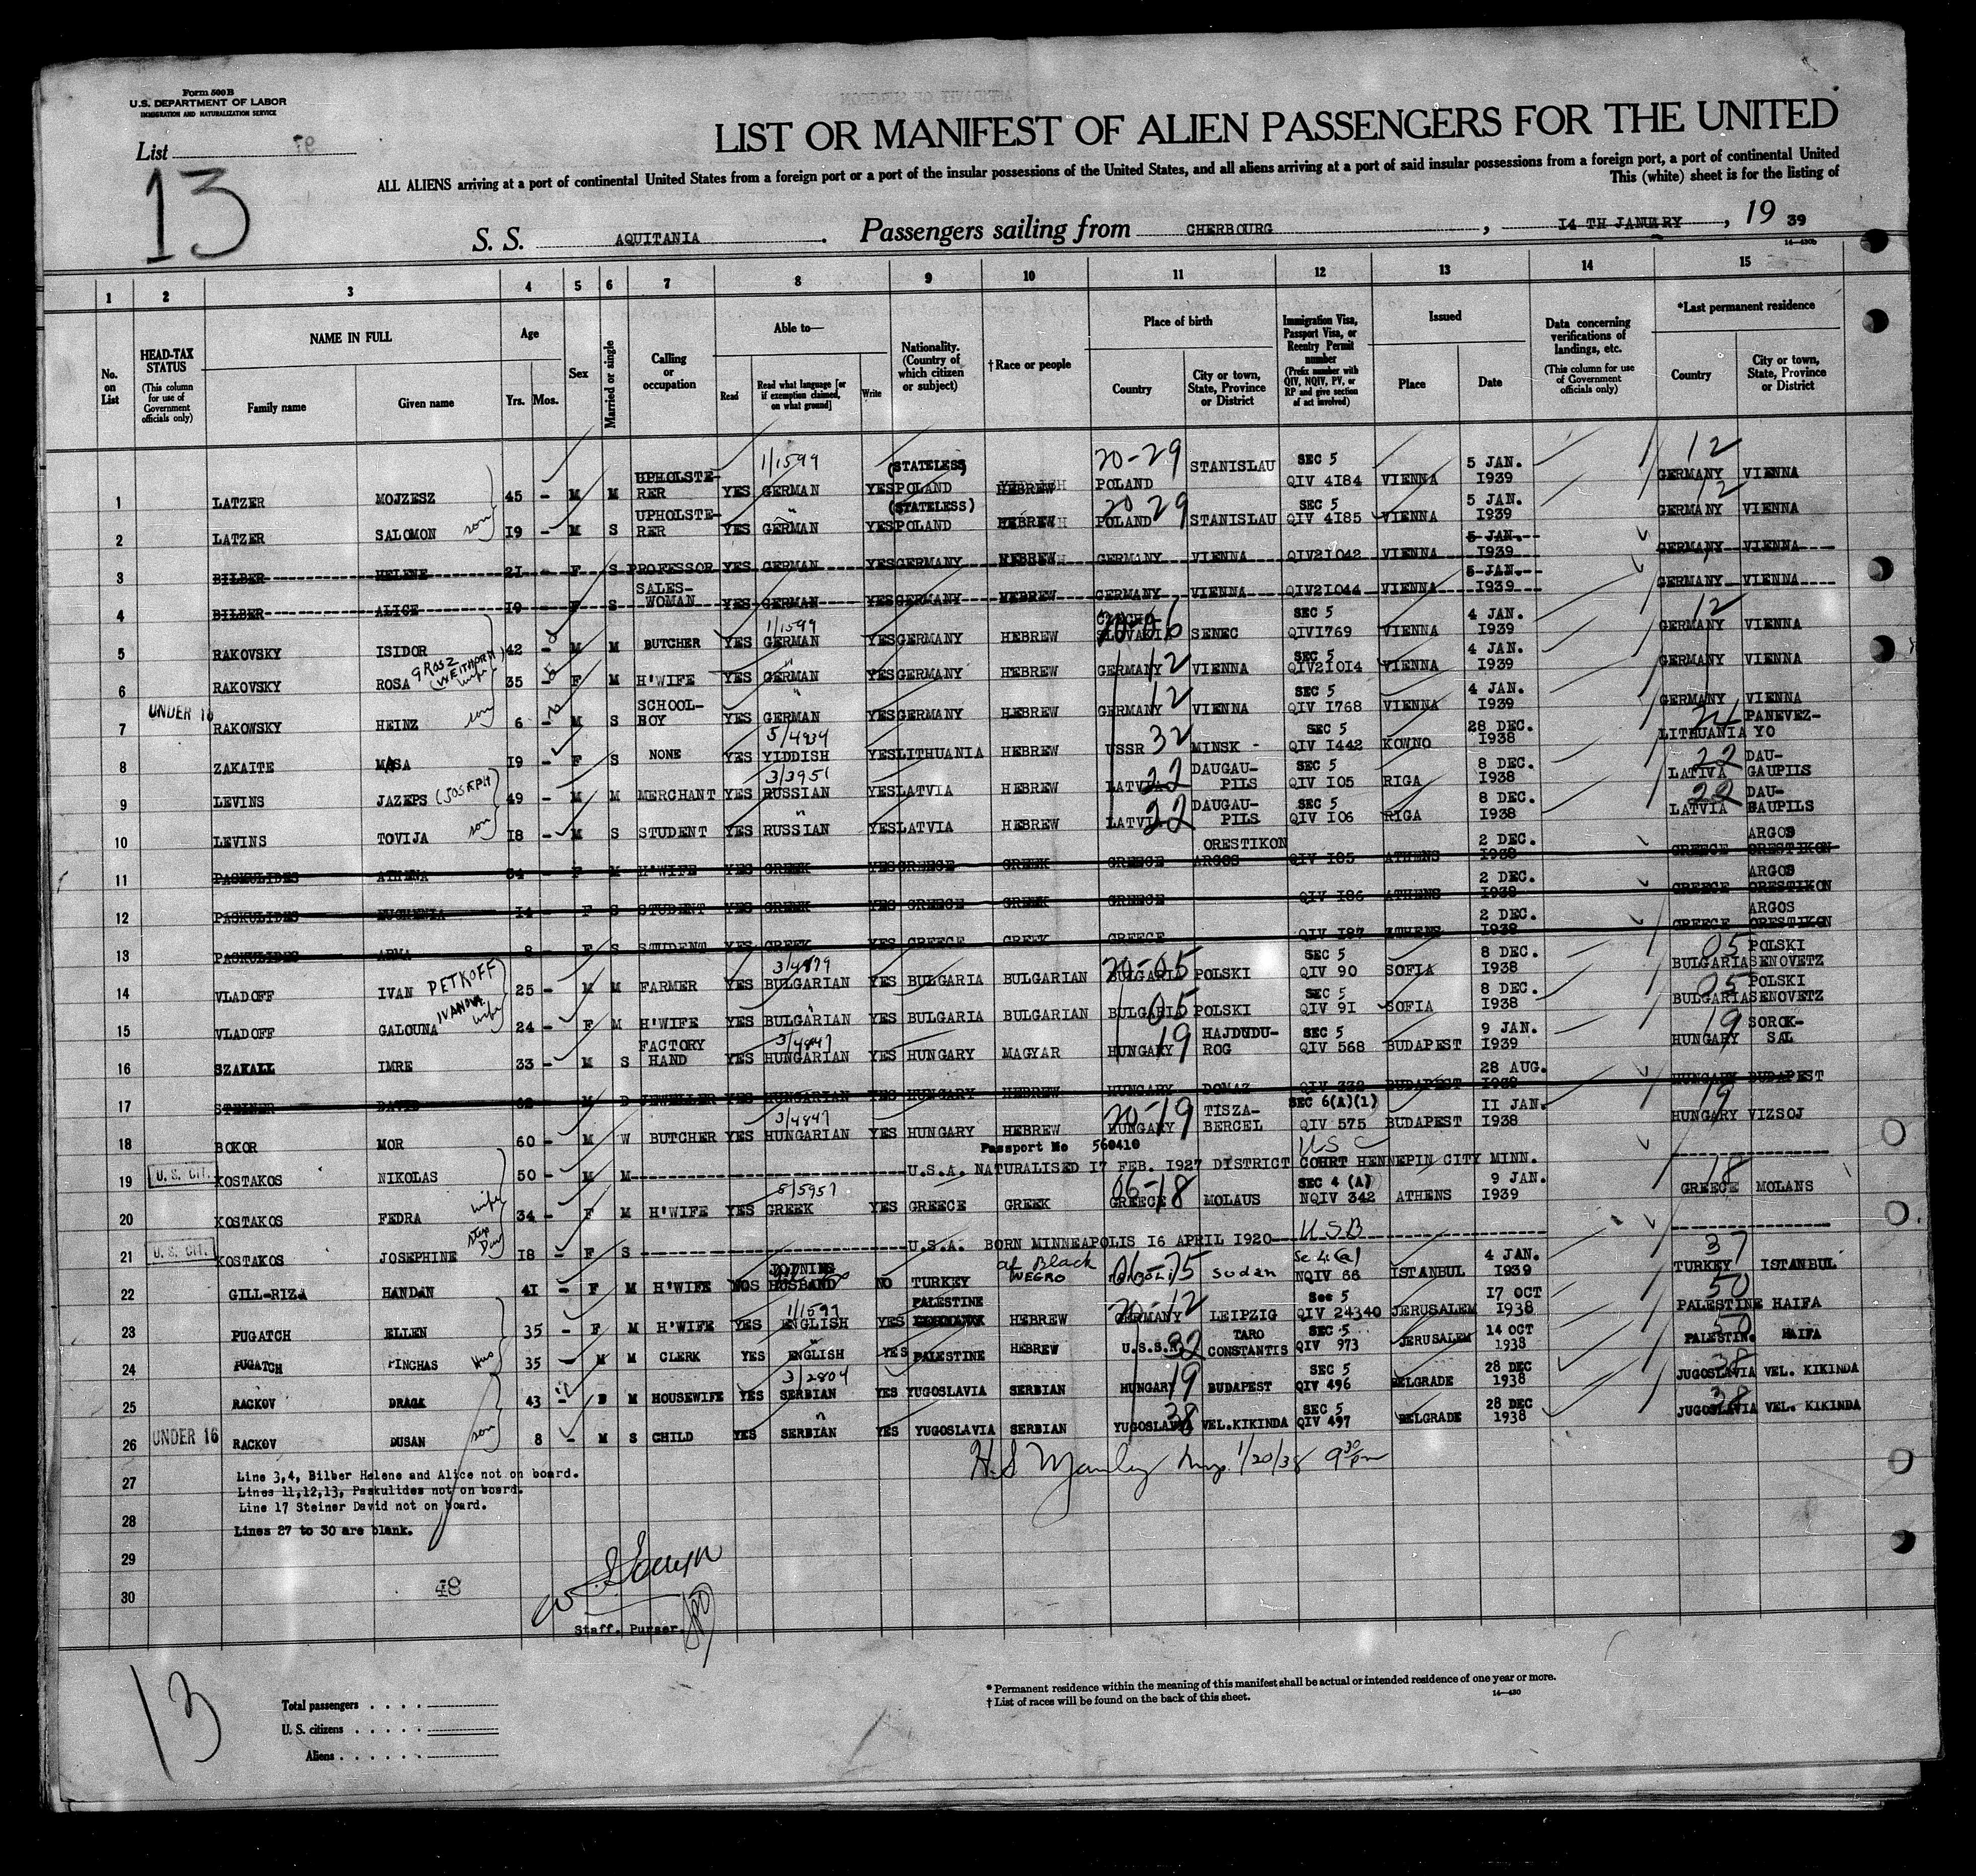 Form 500B
U.S. DEPARTMENT OF LABOR
IMMIGRATION AND NATURALIZATION SERVICE
List
13
LIST OR MANIFEST OF ALIEN PASSENGERS FOR THE UNITED
ALL ALIENS arriving at a port of continental United States from a foreign port or a port of the insular possessions of the United States, and all aliens arriving at a port of said insular possessions from a foreign port, a port of continental United
This (white) sheet is for the listing of
S. S. AQUITANIA. Passengers sailing from CHERBOURG, 14 TH JANUARY, 19 39
14—430b
1 2 3 4 5 6 7 8 9 10 11 12 13 14 15
No. on List
HEAD-TAX STATUS (This column for use of Government officials only)
NAME IN FULL Family name Given name
Age Yrs. Mos.
Sex
Married or single
Calling or occupation
Able to— Read Read what language [or if exemption claimed, on what ground] Write
Nationality. (Country of which citizen or subject)
†Race or people
Place of birth Country City or town, State, Province or District
Immigration Visa, Passport Visa, or Reentry Permit number (Prefix number with QIV, NQIV, PV, or RP and give section of act involved)
Issued Place Date
Data concerning verifications of landings, etc. (This column for use of Government officials only)
*Last permanent residence Country City or town, State, Province or District
1 LATZER MOJZESZ 45 - M M UPHOLSTE-RER YES 1/1599 GERMAN YES (STATELESS) POLAND HEBREW 20-29 POLAND STANISLAU SEC 5 QIV 4184 VIENNA 5 JAN. 1939 12 GERMANY VIENNA
2 LATZER SALOMON son 19 - M S UPHOLSTE-RER YES " GERMAN YES (STATELESS) POLAND HEBREW 20 29 POLAND STANISLAU SEC 5 QIV 4185 VIENNA 5 JAN. 1939 12 GERMANY VIENNA
3 BILBER HELENE 21 - F S PROFESSOR YES GERMAN YES GERMANY HEBREW GERMANY VIENNA QIV21042 VIENNA 5 JAN. 1939 GERMANY VIENNA
4 BILBER ALICE 19 - F S SALES-WOMAN YES GERMAN YES GERMANY HEBREW GERMANY VIENNA QIV21044 VIENNA 5 JAN. 1939 GERMANY VIENNA
5 RAKOVSKY ISIDOR 42 - M M BUTCHER YES 1/1599 GERMAN YES GERMANY HEBREW 20-06 SENEC SEC 5 QIV1769 VIENNA 4 JAN. 1939 12 GERMANY VIENNA
6 RAKOVSKY ROSA GROSZ wife 35 - F M H'WIFE YES " GERMAN YES GERMANY HEBREW GERMANY 12 VIENNA SEC 5 QIV21014 VIENNA 4 JAN. 1939 GERMANY VIENNA
7 UNDER 16 RAKOWSKY HEINZ son 6 - M S SCHOOL-BOY YES " GERMAN YES GERMANY HEBREW GERMANY 12 VIENNA SEC 5 QIV 1768 VIENNA 4 JAN. 1939 GERMANY VIENNA
8 ZAKAITE MASA 19 - F S NONE YES 5/4934 YIDDISH YES LITHUANIA HEBREW USSR 32 MINSK - SEC 5 QIV 1442 KOWNO 28 DEC. 1938 24 LITHUANIA PANEVEZ-YO
9 LEVINS JAZEPS (JOSEPH) 49 - M M MERCHANT YES 3/3951 RUSSIAN YES LATVIA HEBREW LATVIA 22 DAUGAU-PILS SEC 5 QIV 105 RIGA 8 DEC. 1938 22 LATIVA DAU-GAUPILS
10 LEVINS TOVIJA son 18 - M S STUDENT YES " RUSSIAN YES LATVIA HEBREW LATVIA 22 DAUGAU-PILS SEC 5 QIV 106 RIGA 8 DEC. 1938 22 LATVIA DAU-GAUPILS
11 PASKULIDES ATHENA 34 - F M H'WIFE YES GREEK YES GREECE GREEK GREECE ORESTIKON ARGOS QIV 185 ATHENS 2 DEC. 1938 GREECE ARGOS ORESTIKON
12 PASKULIDES EUGHENIA 14 - F S STUDENT YES GREEK YES GREECE GREEK GREECE QIV 186 ATHENS 2 DEC. 1938 GREECE ARGOS ORESTIKON
13 PASKULIDES ARMA 8 - F S STUDENT YES GREEK YES GREECE GREEK GREECE QIV 187 ATHENS 2 DEC. 1938 GREECE ARGOS ORESTIKON
14 VLADOFF IVAN PETKOFF 25 - M M FARMER YES 3/4879 BULGARIAN YES BULGARIA BULGARIAN 20-05 BULGARIA POLSKI SEC 5 QIV 90 SOFIA 8 DEC. 1938 05 BULGARIA POLSKI SENOVETZ
15 VLADOFF GALOUNA IVANOVA wife 24 - F M H'WIFE YES " BULGARIAN YES BULGARIA BULGARIAN BULGARIA 05 POLSKI SEC 5 QIV 91 SOFIA 8 DEC. 1938 05 BULGARIA POLSKI SENOVETZ
16 SZAKALL IMRE 33 - M S FACTORY HAND YES 3/4847 HUNGARIAN YES HUNGARY MAGYAR HUNGARY 19 HAJDUDU-ROG SEC 5 QIV 568 BUDAPEST 9 JAN. 1939 19 HUNGARY SOROK-SAL
17 STEINER DAVID 62 - M D JEWELLER YES HUNGARIAN YES HUNGARY HEBREW HUNGARY DOMAZ QIV 332 BUDAPEST 28 AUG. 1938 HUNGARY BUDAPEST
18 BOKOR MOR 60 - M W BUTCHER YES 3/4847 HUNGARIAN YES HUNGARY HEBREW 20-19 HUNGARY TISZA-BERCEL SEC 6(A)(1) QIV 575 BUDAPEST 11 JAN. 1938 19 HUNGARY VIZSOJ
Passport No 560410 USC
19 U. S. CIT. KOSTAKOS NIKOLAS 50 - M M U.S.A. NATURALISED 17 FEB. 1927 DISTRICT COURT HENNEPIN CITY MINN.
20 KOSTAKOS FEDRA wife 34 - F M H'WIFE YES 5/5957 GREEK YES GREECE GREEK 06-18 GREECE MOLAUS SEC 4 (A) NQIV 342 ATHENS 9 JAN. 1939 18 GREECE MOLANS
21 U. S. CIT. KOSTAKOS JOSEPHINE step Dau 18 - F S U.S.A. BORN MINNEAPOLIS 16 APRIL 1920 USB
22 GILL-RIZA HANDAN 41 - F M H'WIFE JOINING HUSBAND NO TURKEY af Black NEGRO 06-75 Sudan Se 4(a) NQIV 66 ISTANBUL 4 JAN. 1939 37 TURKEY ISTANBUL
23 PUGATCH ELLEN 35 - F M H'WIFE YES 1/1599 ENGLISH YES PALESTINE HEBREW 20-12 GERMANY LEIPZIG Sec 5 QIV 24340 JERUSALEM 17 OCT 1938 50 PALESTINE HAIFA
24 PUGATCH PINCHAS Hus 35 - M M CLERK YES " ENGLISH YES PALESTINE HEBREW U.S.S.R. 32 TARO CONSTANTIS SEC 5 QIV 973 JERUSALEM 14 OCT 1938 50 PALESTIN. HAIFA
25 RACKOV DRAGA 43 - M HOUSEWIFE YES 3/2804 SERBIAN YES YUGOSLAVIA SERBIAN HUNGARY 19 BUDAPEST SEC 5 QIV 496 BELGRADE 28 DEC 1938 38 JUGOSLAVIA VEL. KIKINDA
26 UNDER 16 RACKOV DUSAN son 8 - M S CHILD YES " SERBIAN YES YUGOSLAVIA SERBIAN YUGOSLAVIA 38 VEL.KIKINDA SEC 5 QIV 497 BELGRADE 28 DEC 1938 38 JUGOSLAVIA VEL. KIKINDA
H.S Manley Insp. 1/20/38 9 30 pm
27 Line 3,4, Bilber Helene and Alice not on board.
Lines 11,12,13, Paskulides not on board.
Line 17 Steiner David not on board.
28 Lines 27 to 30 are blank.
29
30 48
Staff. Purser.
13
Total passengers
U. S. citizens
Aliens
* Permanent residence within the meaning of this manifest shall be actual or intended residence of one year or more.
† List of races will be found on the back of this sheet.
14—430